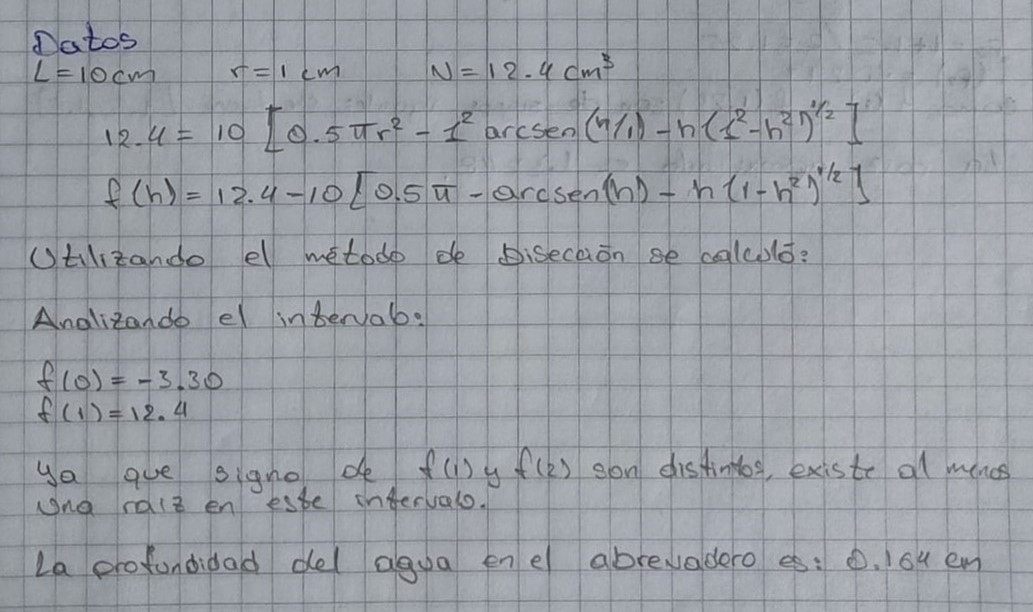 Datos
L=10cm r=1 cm N=12.4 cm³
12.4 = 10 [0.5πr² - 1² arcsen(h/1) - h(1²-h²)^1/2]
f(h) = 12.4-10[0.5π - arcsen(h) - h(1-h²)^1/2]
Utilizando el método de bisección se calculó:
Analizando el intervalo:
f(0) = -3.30
f(1)=12.4
Ya que signo de f(1) y f(2) son distintos, existe al menos
una raiz en este intervalo.
La profundidad del agua en el abrevadero es: 0.164 cm